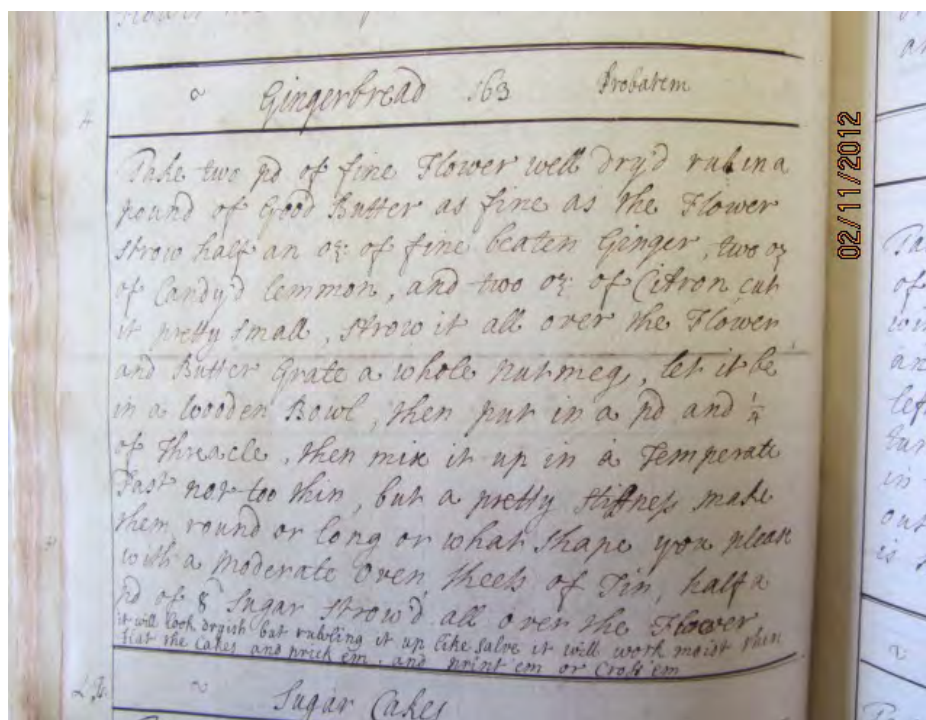 Gingerbread 163 Probatem
Take two pd of fine Flower well dry'd rub in a
pound of Good Butter as fine as the Flower
strow half an oz: of fine beaten Ginger, two oz
of Candy'd lemmon, and two oz: of Citron cut
it pretty small, strow it all over the Flower
and Butter Grate a whole Nutmeg, let it be
in a wooden Bowl, then put in a pd and
of Threacle, then mix it up in a Temperate
Past not too thin, but a pretty stiffness make
them round or long or what shape you pleas
with a Moderate Oven, sheets of Tin, half a
pd of 8d Sugar strow'd all over the Flower
it will look dryish but rubling it up like salve it will work moist then
flat the Cakes and prick em, and print em or Cross em
Sugar Cakes
02/11/2012